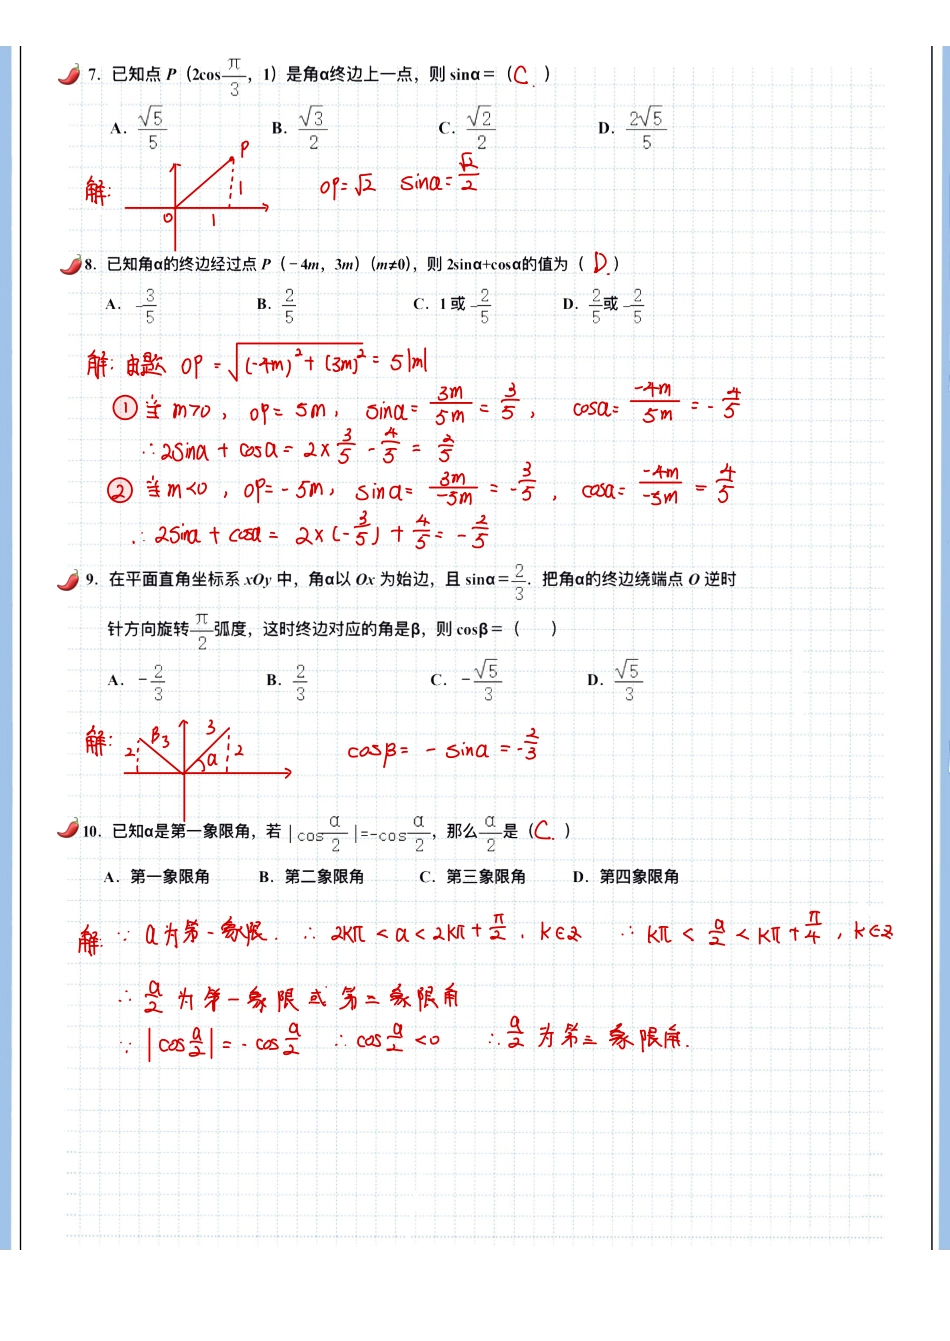 7. 已知点 P（2cos π/3，1）是角α终边上一点，则 sinα＝（C.）
A. √5/5 B. √3/2 C. √2/2 D. 2√5/5
解: P O 1 1 OP=√2 sinα=√2/2
8. 已知角α的终边经过点 P（－4m，3m）（m≠0），则 2sinα+cosα的值为（D.）
A. -3/5 B. 2/5 C. 1 或 -2/5 D. 2/5 或 -2/5
解: 由题 OP = √((-4m)²+(3m)²) = 5|m|
① 当 m>0, OP=5m, sinα= 3m/5m = 3/5, cosα= -4m/5m = -4/5
∴2sinα+cosα=2×3/5-4/5=2/5
② 当 m<0, OP=-5m, sinα= 3m/-5m = -3/5, cosα= -4m/-5m = 4/5
∴2sinα+cosα= 2×(-3/5)+4/5=-2/5
9. 在平面直角坐标系 xOy 中，角α以 Ox 为始边，且 sinα＝2/3. 把角α的终边绕端点 O 逆时
针方向旋转 π/2 弧度，这时终边对应的角是β，则 cosβ＝（ ）
A. -2/3 B. 2/3 C. -√5/3 D. √5/3
解: 2 β 3 3 α 2 cosβ= -sinα=-2/3
10. 已知α是第一象限角，若 |cos α/2 |=-cos α/2，那么 α/2 是（C.）
A. 第一象限角 B. 第二象限角 C. 第三象限角 D. 第四象限角
解. ∵ α为第一象限. ∴ 2kπ<α<2kπ+π/2, k∈Z ∴ kπ< α/2 <kπ+π/4, k∈Z
∴ α/2 为第一象限或第三象限角
∵ |cos α/2|=-cos α/2 ∴ cos α/2 <0 ∴ α/2 为第三象限角.